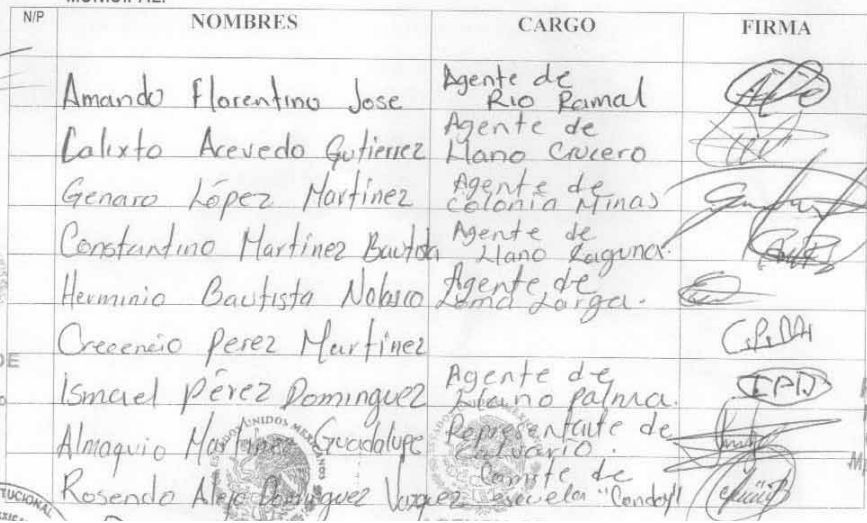 MUNICIPAL.
N/P NOMBRES CARGO FIRMA
Amando Florentino Jose Agente de Rio Ramal
Calixto Acevedo Gutierrez Agente de Llano Crucero
Genaro López Martínez Agente de Colonia Minas
Constantino Martinez Bautista Agente de Llano Laguna.
Herminio Bautista Nolasco Agente de Loma Larga.
Crecencio Perez Martinez
Ismael Pérez Dominguez Agente de Llano palma. IPD
Almaquio Martinez Guadalupe Representante de Calvario.
Rosendo Alejo Dominguez Vazquez Comite de escuela "Condoy"
UNIDOS MEXICANOS
DE